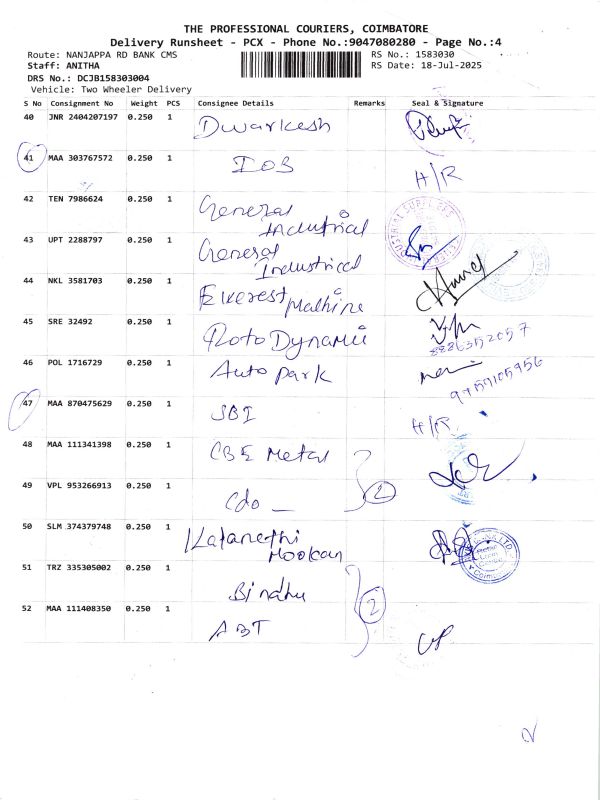 THE PROFESSIONAL COURIERS, COIMBATORE
Delivery Runsheet - PCX - Phone No.:9047080280 - Page No.:4
Route: NANJAPPA RD BANK CMS RS No.: 1583030
Staff: ANITHA RS Date: 18-Jul-2025
DRS No.: DCJB158303004
Vehicle: Two Wheeler Delivery
S No Consignment No Weight PCS Consignee Details Remarks Seal & Signature
40 JNR 2404207197 0.250 1 Dwarkesh
41 MAA 303767572 0.250 1 IOB H/R
42 TEN 7986624 0.250 1 General Industrial
43 UPT 2288797 0.250 1 General Industrial
44 NKL 3581703 0.250 1
45 SRE 32492 0.250 1 Roto Dynamic 8886352057
46 POL 1716729 0.250 1 Auto park 9489105956
47 MAA 870475629 0.250 1 SBI H/R
48 MAA 111341398 0.250 1 CBE Metal
2
49 VPL 953266913 0.250 1 Cdo
50 SLM 374379748 0.250 1
51 TRZ 335305002 0.250 1 Bindhu
2
52 MAA 111408350 0.250 1 ABT